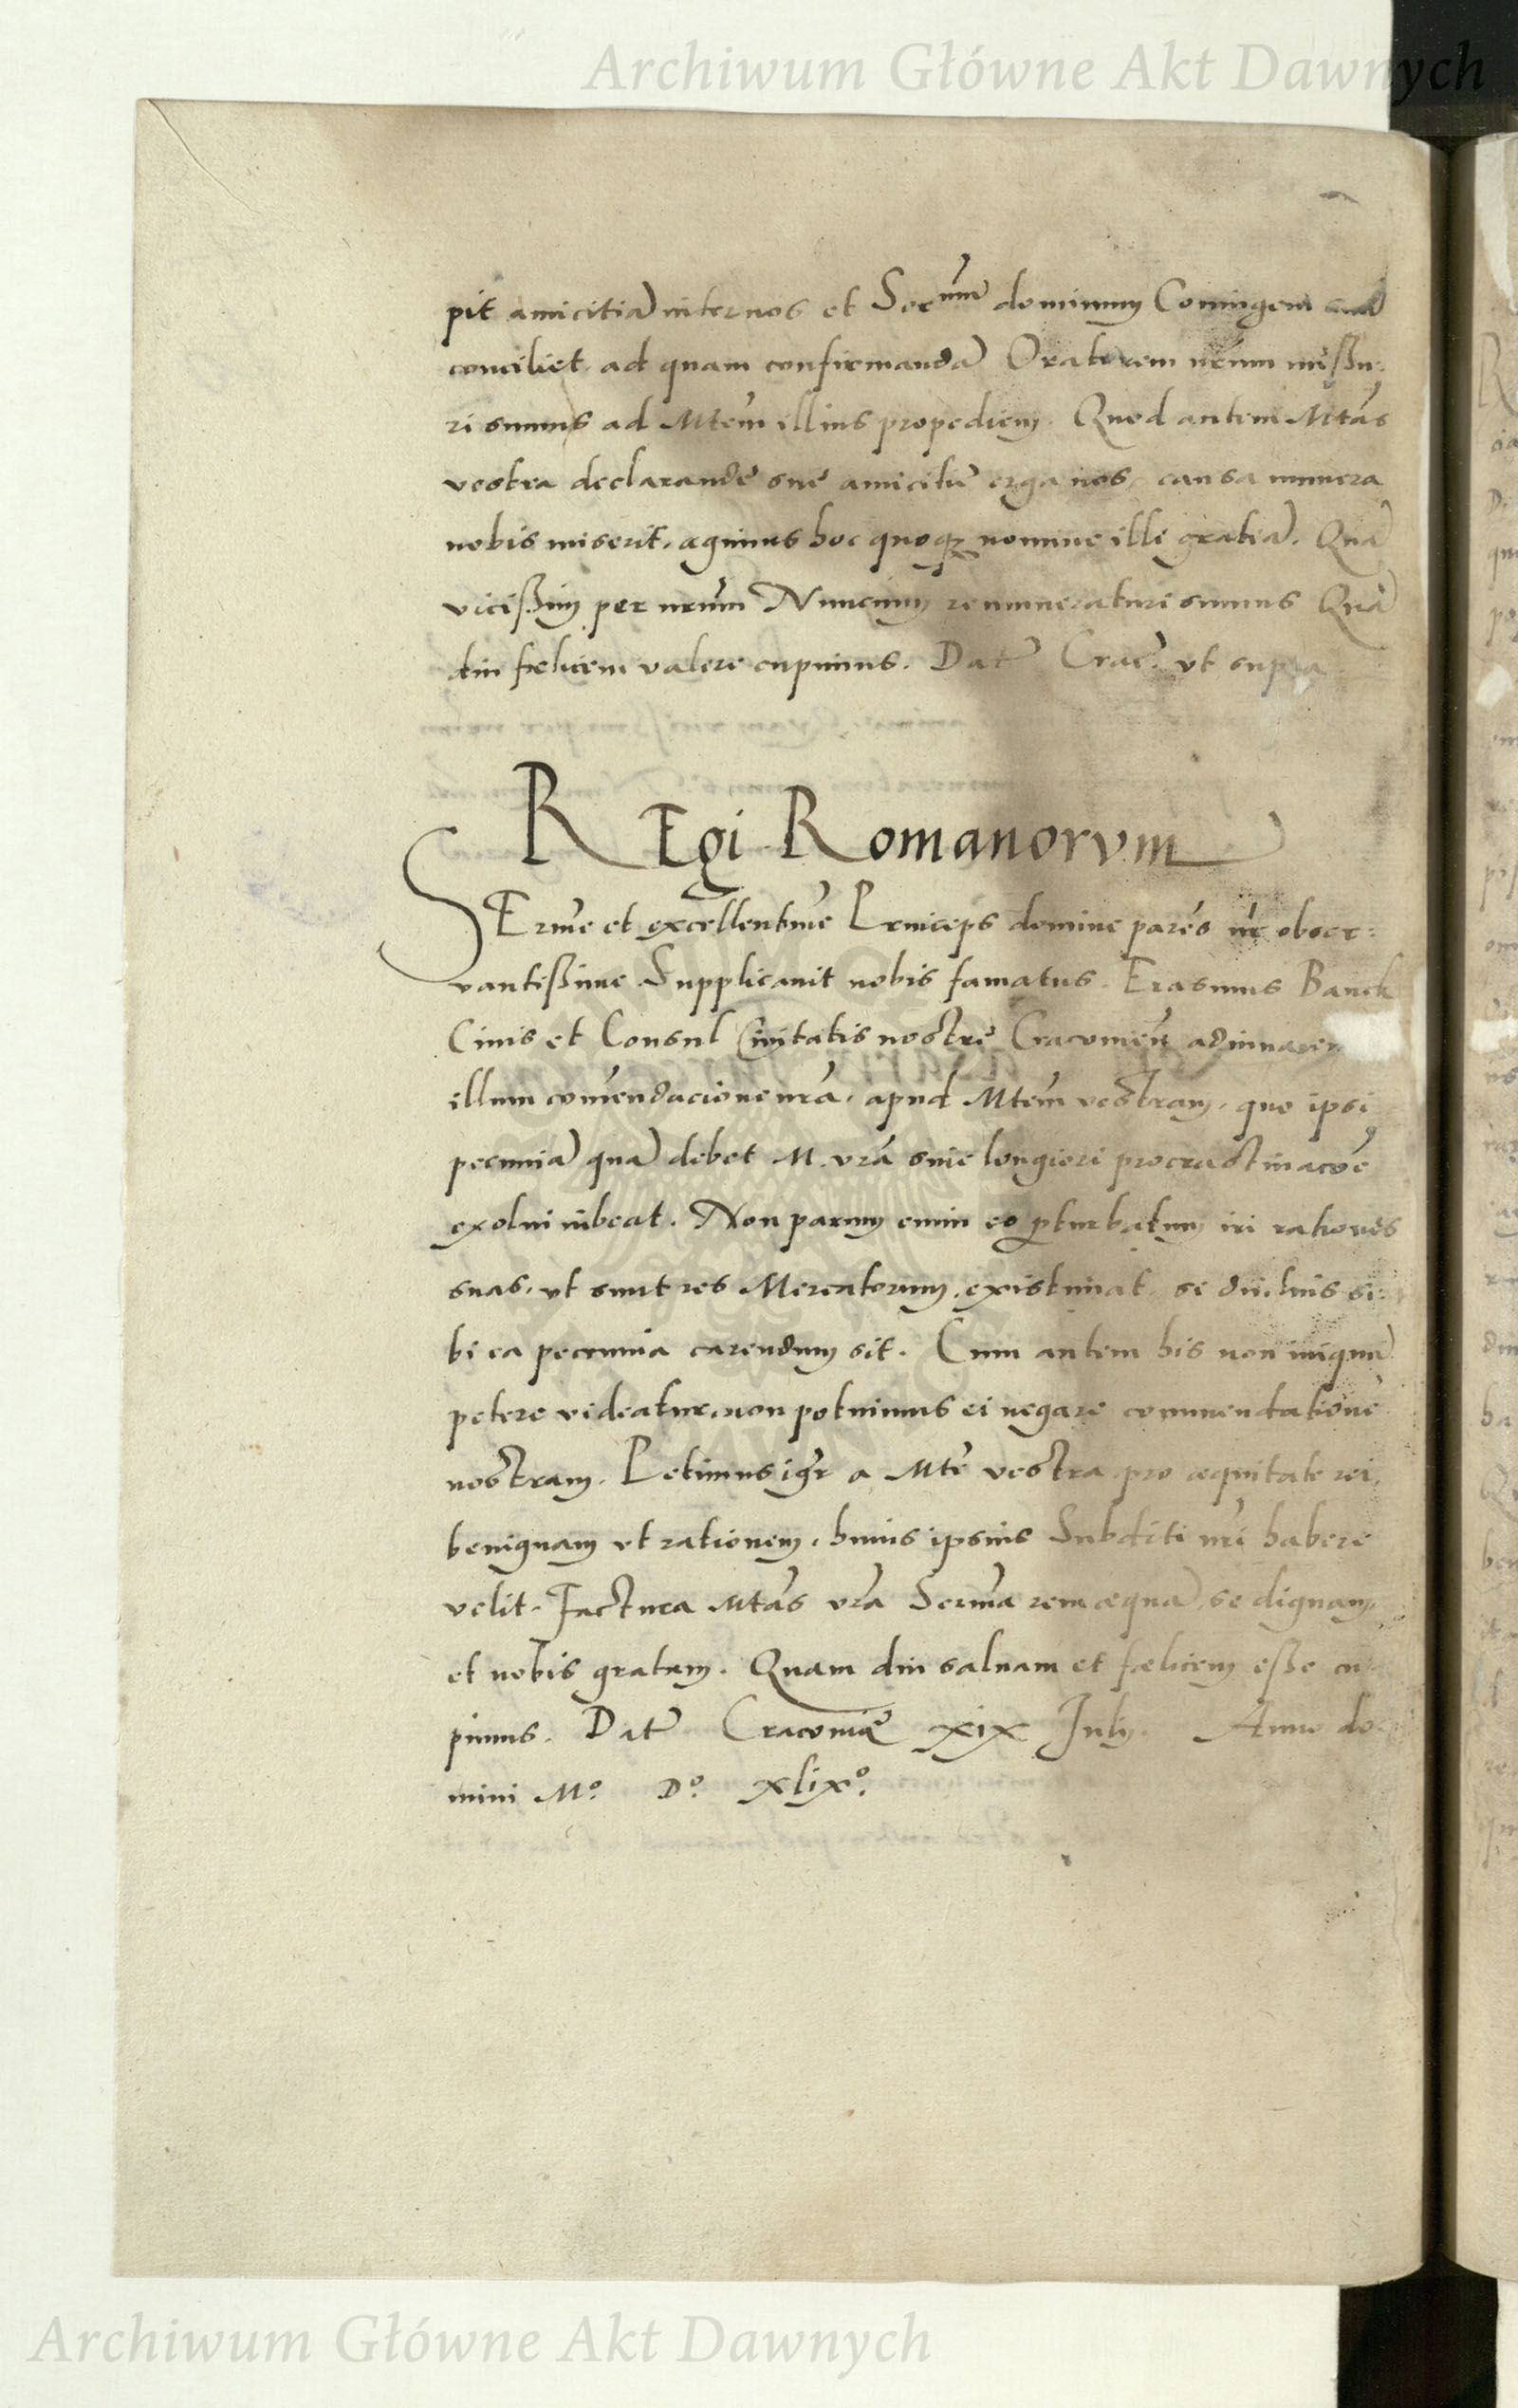 Archiwum Główne Akt Dawnych
pit amicitiã internos et Serᵐᵘᵐ dominum Coniugem suã
conciliet, ad quam confirmandã Oratorem nr̃um missu:
ri sumus ad Mtem̃ illius propediem. Quod autem Mtas̃
vestra declarandę suę amicitię erga nos, causa munera
nobis miserit, agimus hoc quoqꝫ nomine illi gratiã. Quã
vicißim per nrũm Nuncium remuneraturi sumus Quã
diu fęlicem valere cupimus. Dat̃ Crac̃. vt supra
REgi Romanorvm
SErme̅ et excellentme̅ Princeps domine pares̃ nr̃ obser:
vantißime Supplicauit nobis famatus Erasmus Banck
Ciuis et Consul Ciuitatis nostrę Cracouien̅ adiuuarem
illum com̅endacione nrã, apud Mtem̃ vestram, quo ipsi
pecuniã quã debet M. vrã sine longiori procrastinacoẽ
exolui iubeat. Non parum enim eo ꝑturbatum iri rationes
suas, vt sunt res Mercatorum, existimat, se diutius si:
bi ea pecunia carendum sit. Cum autem his non iniquã
petere videatur, non potuimus ei negare commendationẽ
nostram. Petimus igr̃ a Mtẽ vestra pro aequitate rei,
benignam vt rationem, huius ipsius Subditi nrĩ habere
velit. Factura Mtas̃ vrã Sermã rem aequã, se dignam,
et nobis gratam. Quam diu saluam et fælicem eße cu
pimus. Dat̃ Cracouiæ xix Julij. Anno do
mini Mº. Dº. xlixº.
Archiwum Główne Akt Dawnych